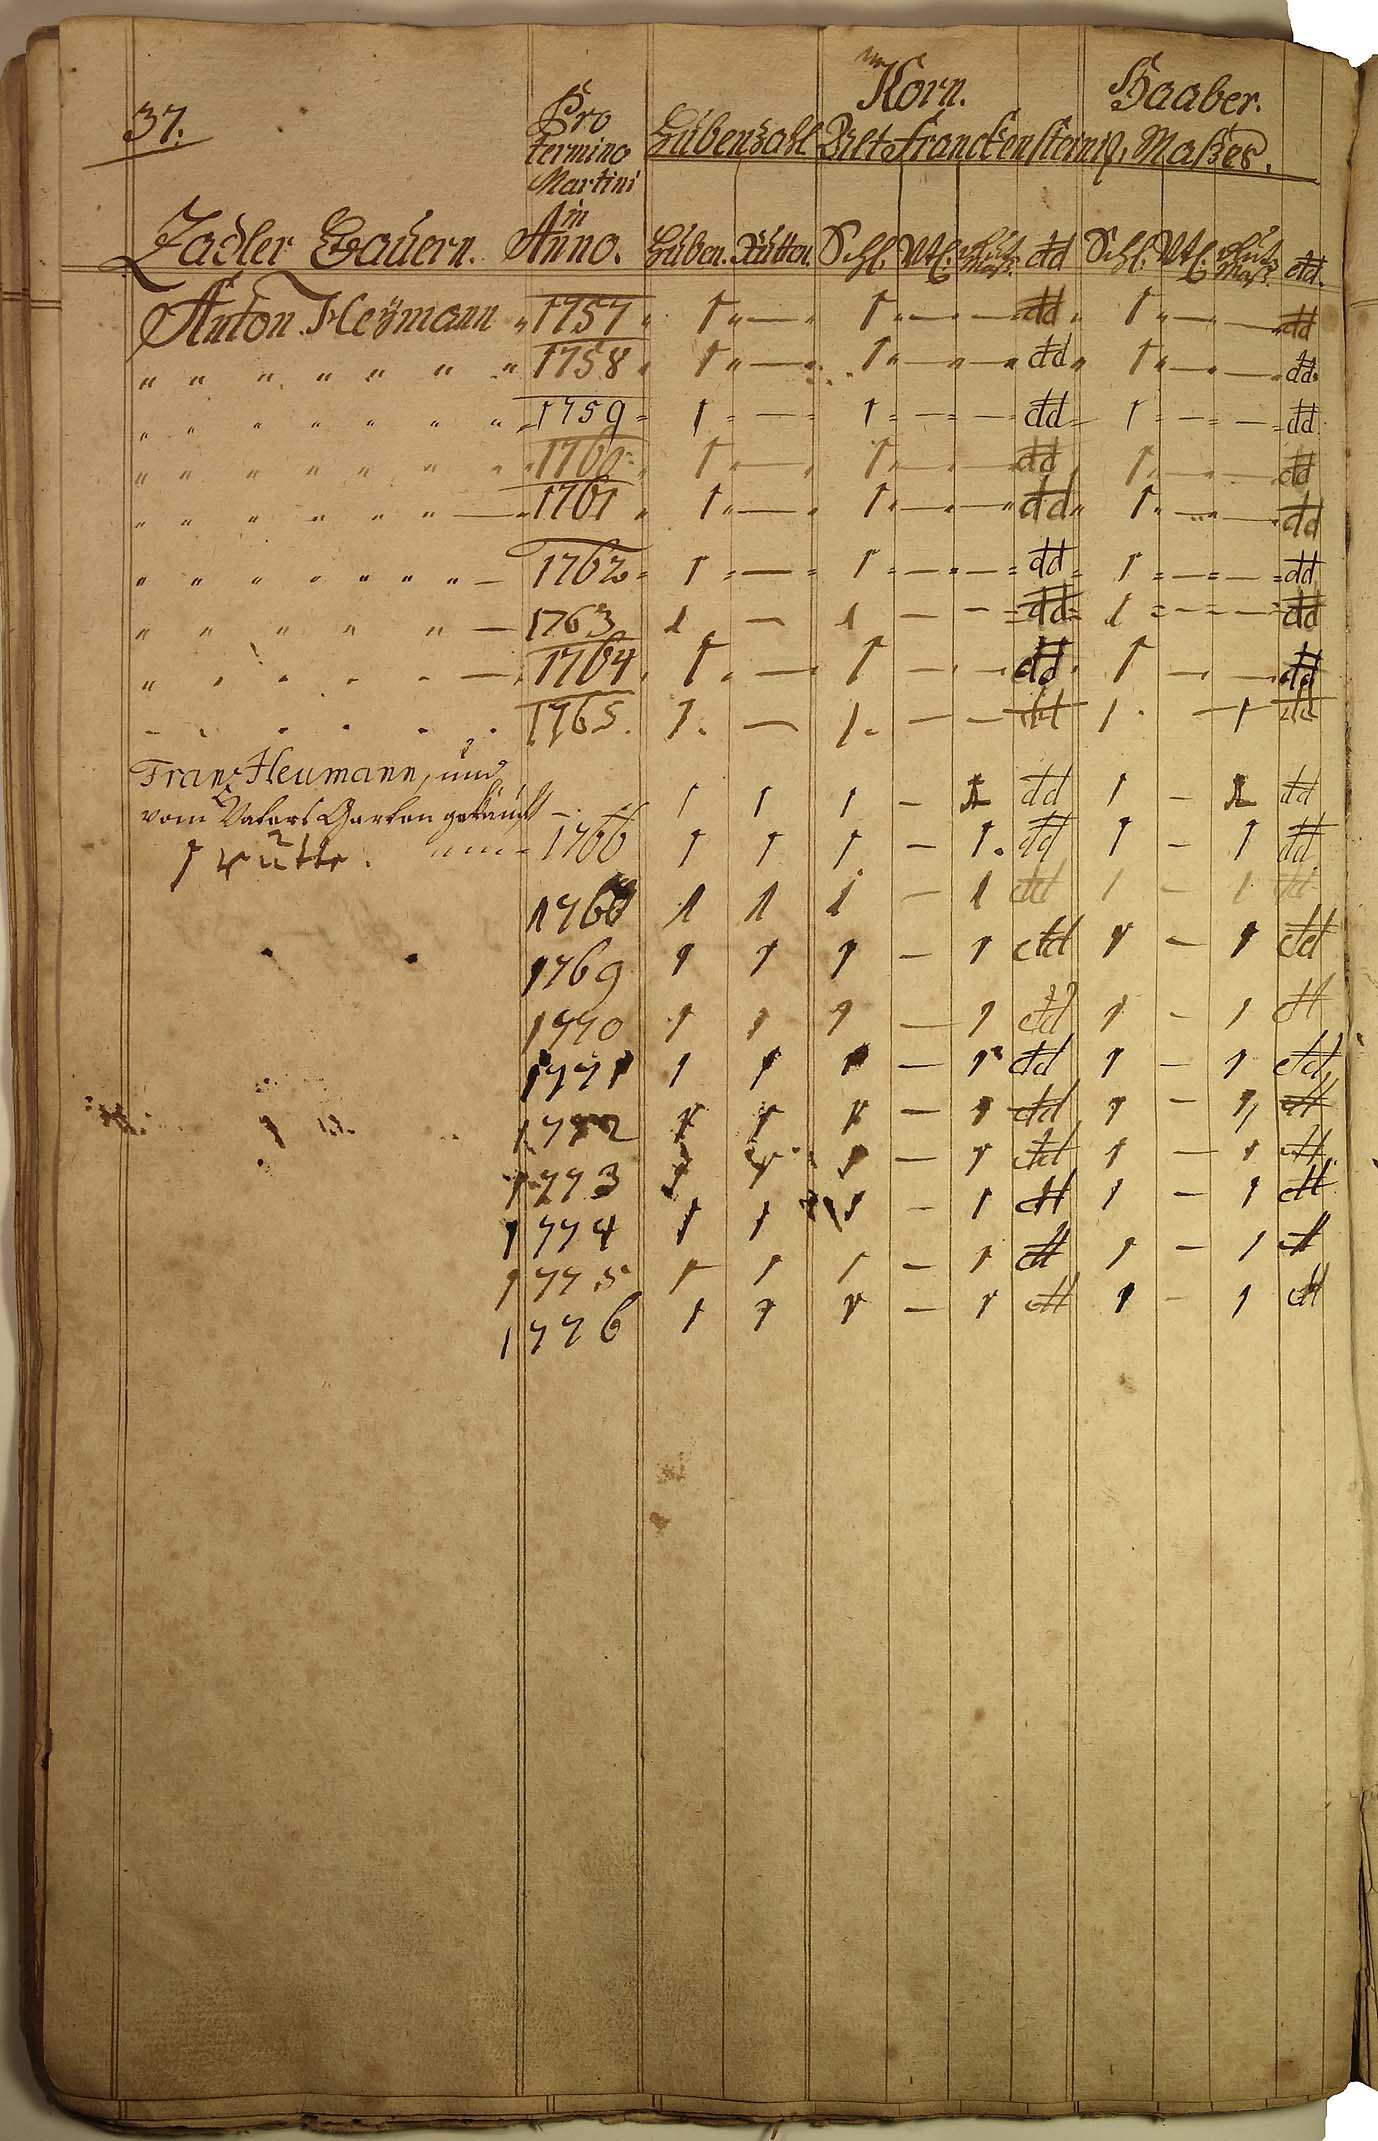 37.
Pro termino Martini in Anno.
Korn. Haaber.
Hubenzahl Alt Franckensteinis. Maßes.
Zadler Bauern. Huben. Rutten. Schl. Vtl. dd Schl. Vtl. dd.
Anton Heÿmann " 1757 " 1 " — " 1 " — " — dd " 1 " — " — dd
" " " " " " " 1758 " 1 " — " 1 " — " — dd " 1 " — " — dd
" " " " " " " 1759 = 1 = — = 1 = — = — dd = 1 = — = — = dd
" " " " " " " 1760 " 1 " — " 1 " — " — dd " 1 " — " — dd
" " " " " " — 1761 " 1 " — " 1 " — " — dd " 1 " — " — dd
" " " " " " " — 1762 = 1 = — = 1 = — = — = dd = 1 = — = — = dd
" " " " " — 1763 1 — 1 — — = dd = 1 = — = — = dd
" " " " " " — 1764 " 1 " — 1 — " — dd " 1 — " — dd
" " " " " " 1765. 1. — 1. — — dd 1. — 1 dd
Franz Heumann, und
vom Vaters Garten gekauft — 1 1 1 — 1 dd 1 — 1 dd
1 Rutte. " " " 1766 1 1 1 — 1. dd 1 — 1 dd
1768 1 1 1 — 1 dd 1 — 1 dd
1769 1 1 1 — 1 dd 1 — 1 dd
1770 1 1 1 — 1 dd 1 — 1 dd
1771 1 1 1 — 1 dd 1 — 1 dd
1772 1 1 1 — 1 dd 1 — 1 dd
1773 1 1 1 — 1 dd 1 — 1 dd
1774 1 1 1 — 1 dd 1 — 1 dd
1775 1 1 1 — 1 dd 1 — 1 dd
1776 1 1 1 — 1 dd 1 — 1 dd